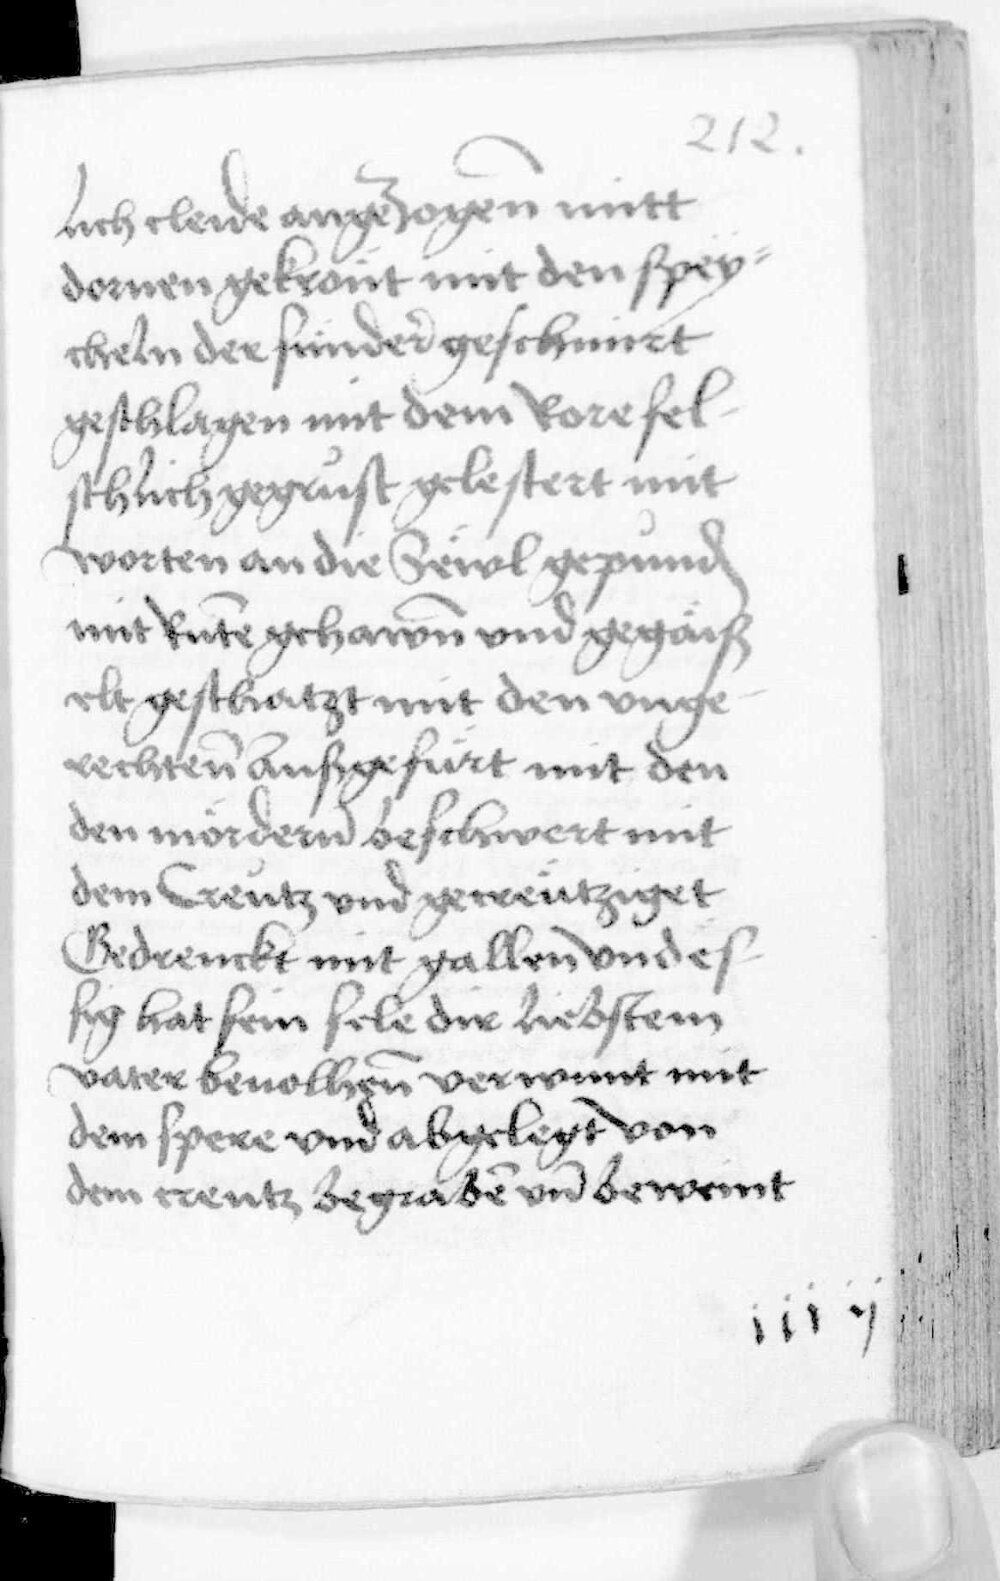 212.
lich cleide angezogenn mitt
dornen gekrönt mit den speÿ=
cheln der sünder geschmirt
geschlagen mit dem Rore fel-
schlich gegrüst gelestert mit
worten an die Sewl gepund
mit Rutē gehawn̄ vnd gegäiß
elt geschatzt mit den vnge-
rechten̄ Außgefürt mit den
den mördern̄ beschwert mit
dem Creütz vnd gecreütziget
Gedrenckt mit gallen vnd es-
sig hat sein sele dir liebstem
vater beuolhen̄ verwunt mit
dem spere vnd abgelegt von
dem creutz begrabē vn̄ beweint
iii ij